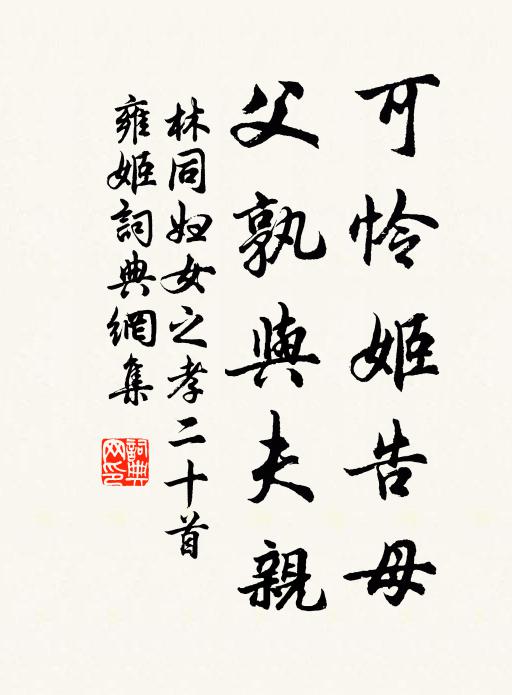 可怜姬告母
父孰與夫親
林同妇女之孝二十首
雍姬詞典網集
詞典
网印